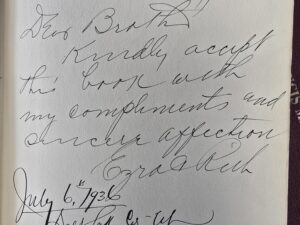 Dear Broth
Kindly accept
this book with
my compliments and
sincere affection
Ezra Rich
July 6, 1936